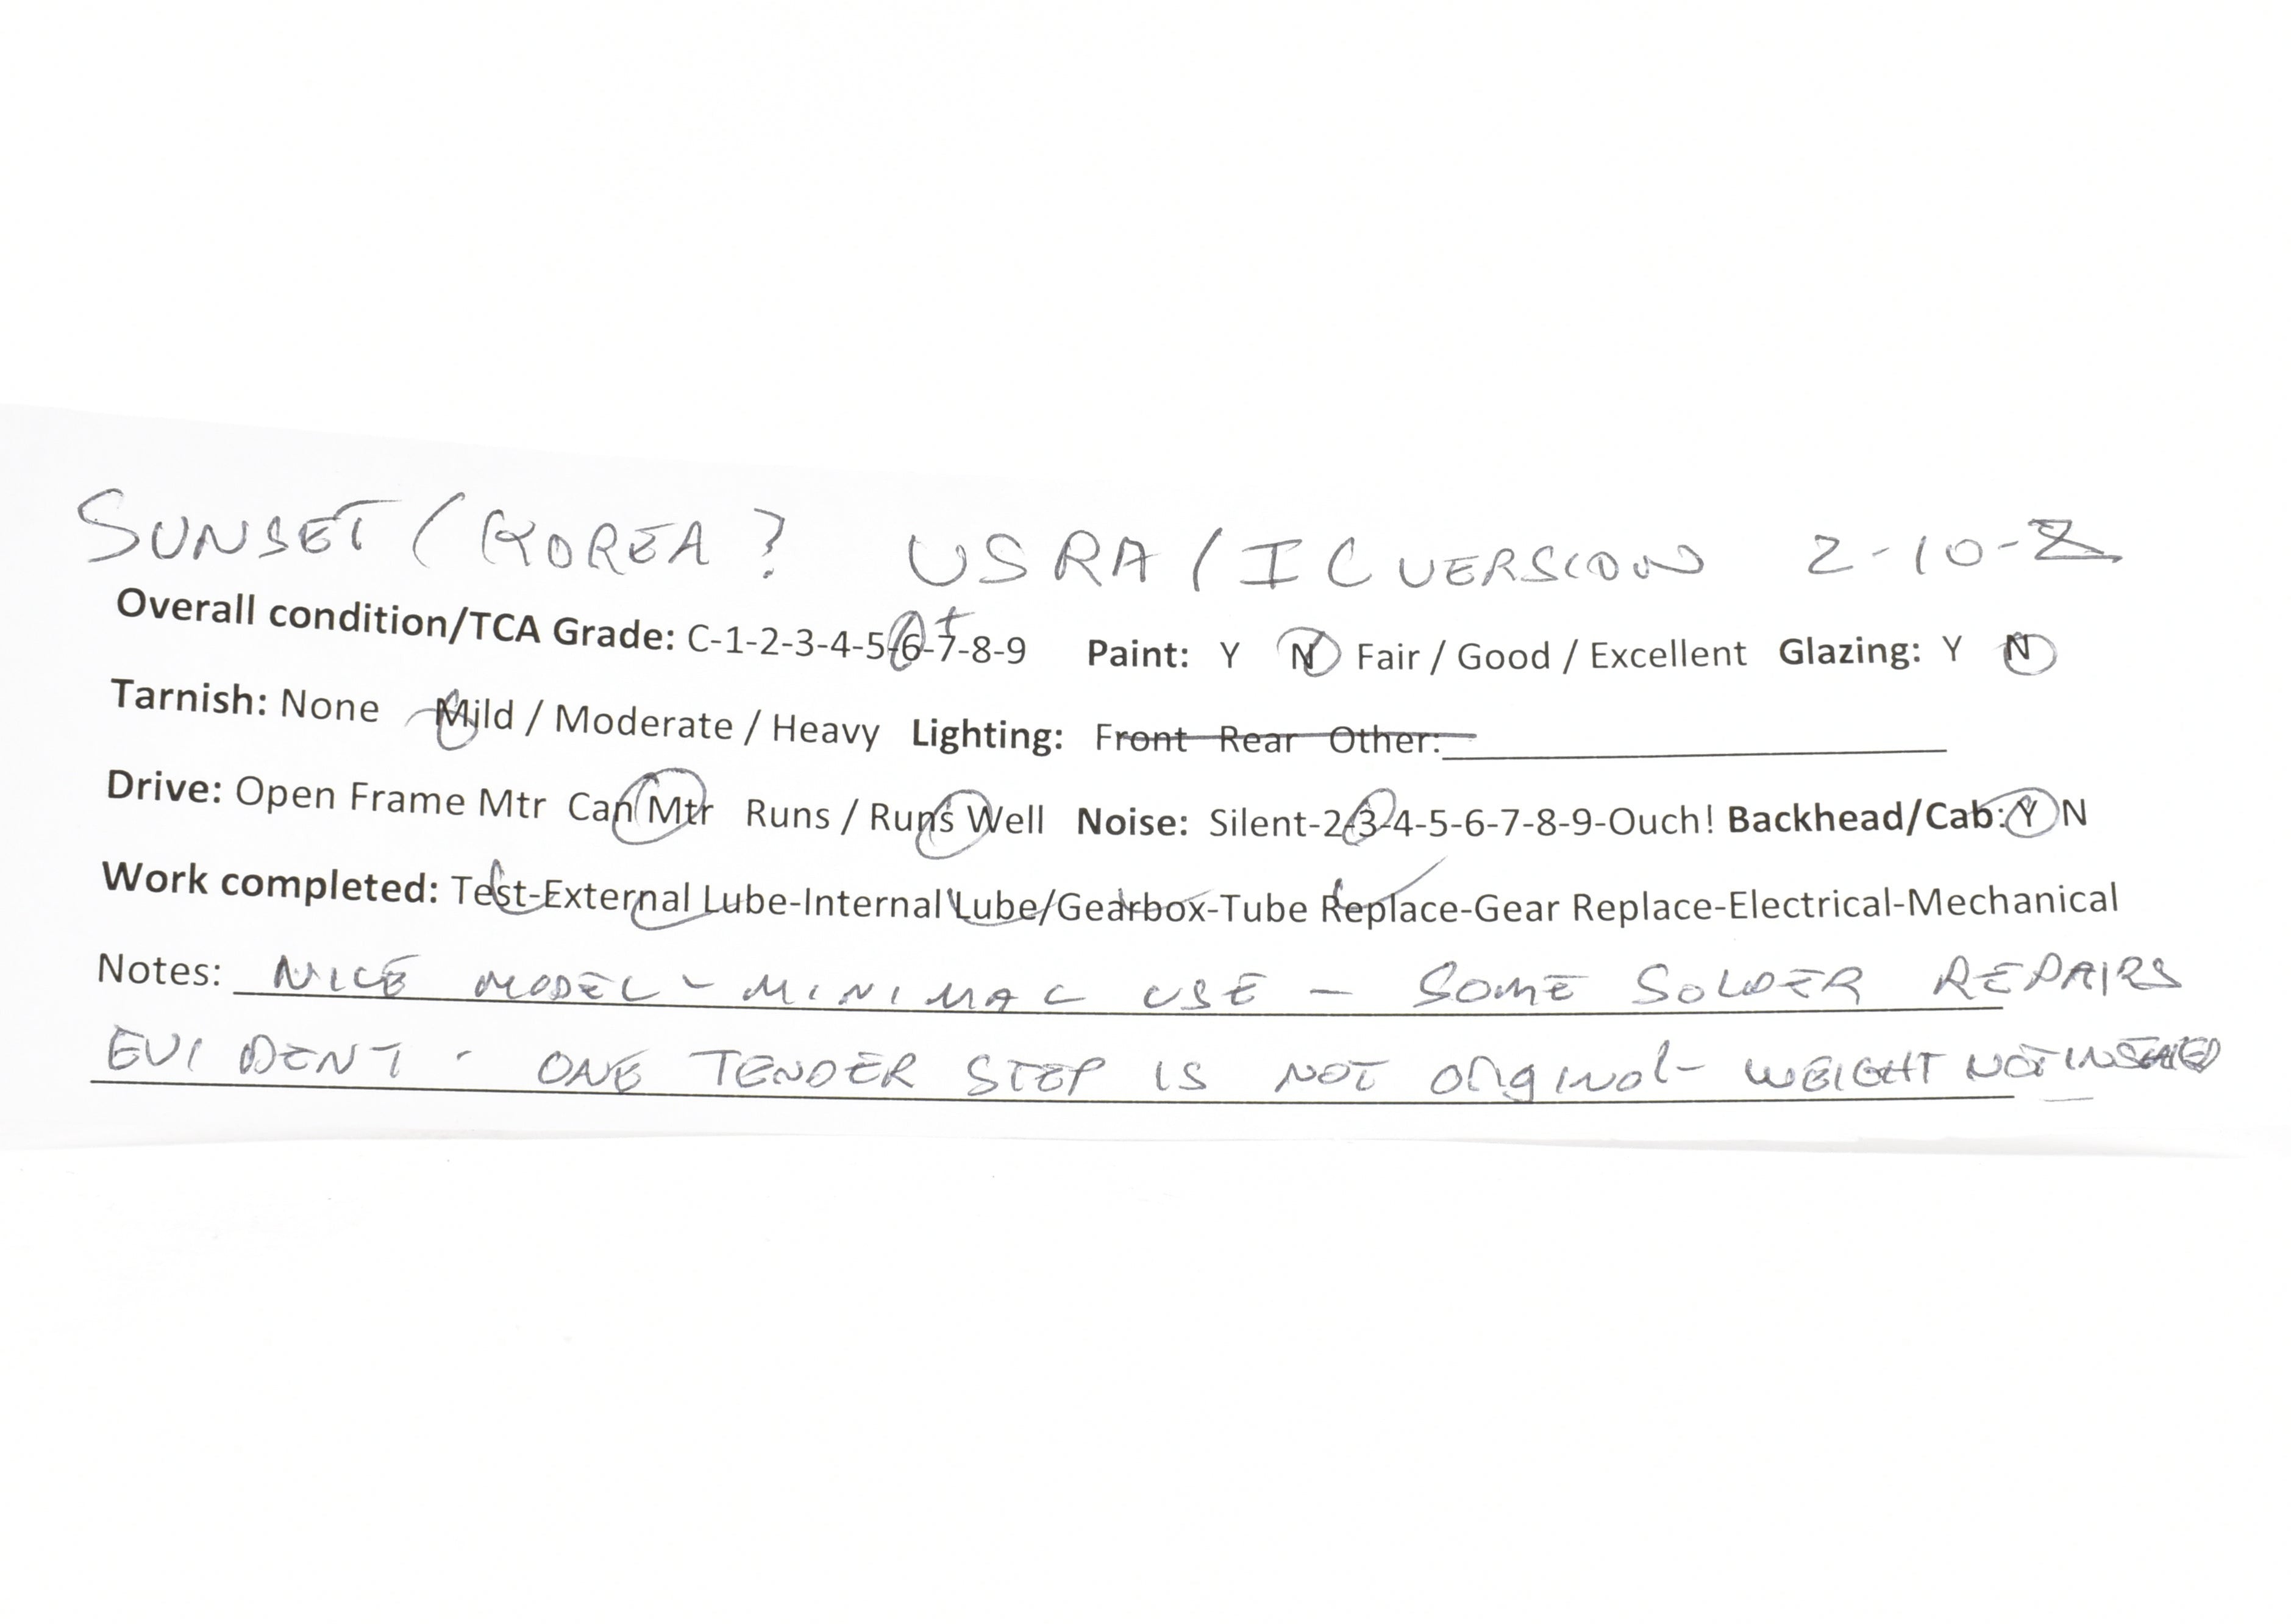 SUNSET / KOREA ? USRA / IC VERSION 2-10-2
Overall condition/TCA Grade: C-1-2-3-4-5-6-7-8-9 + Paint: Y N Fair / Good / Excellent Glazing: Y N
Tarnish: None Mild / Moderate / Heavy Lighting: Front Rear Other:
Drive: Open Frame Mtr Can Mtr Runs / Runs Well Noise: Silent-2-3-4-5-6-7-8-9-Ouch! Backhead/Cab: Y N
Work completed: Test-External Lube-Internal Lube/Gearbox-Tube Replace-Gear Replace-Electrical-Mechanical
Notes: NICE MODEL - MINIMAL USE - SOME SOLDER REPAIRS
EVIDENT - ONE TENDER STEP IS NOT OrIginal - WEIGHT NOT